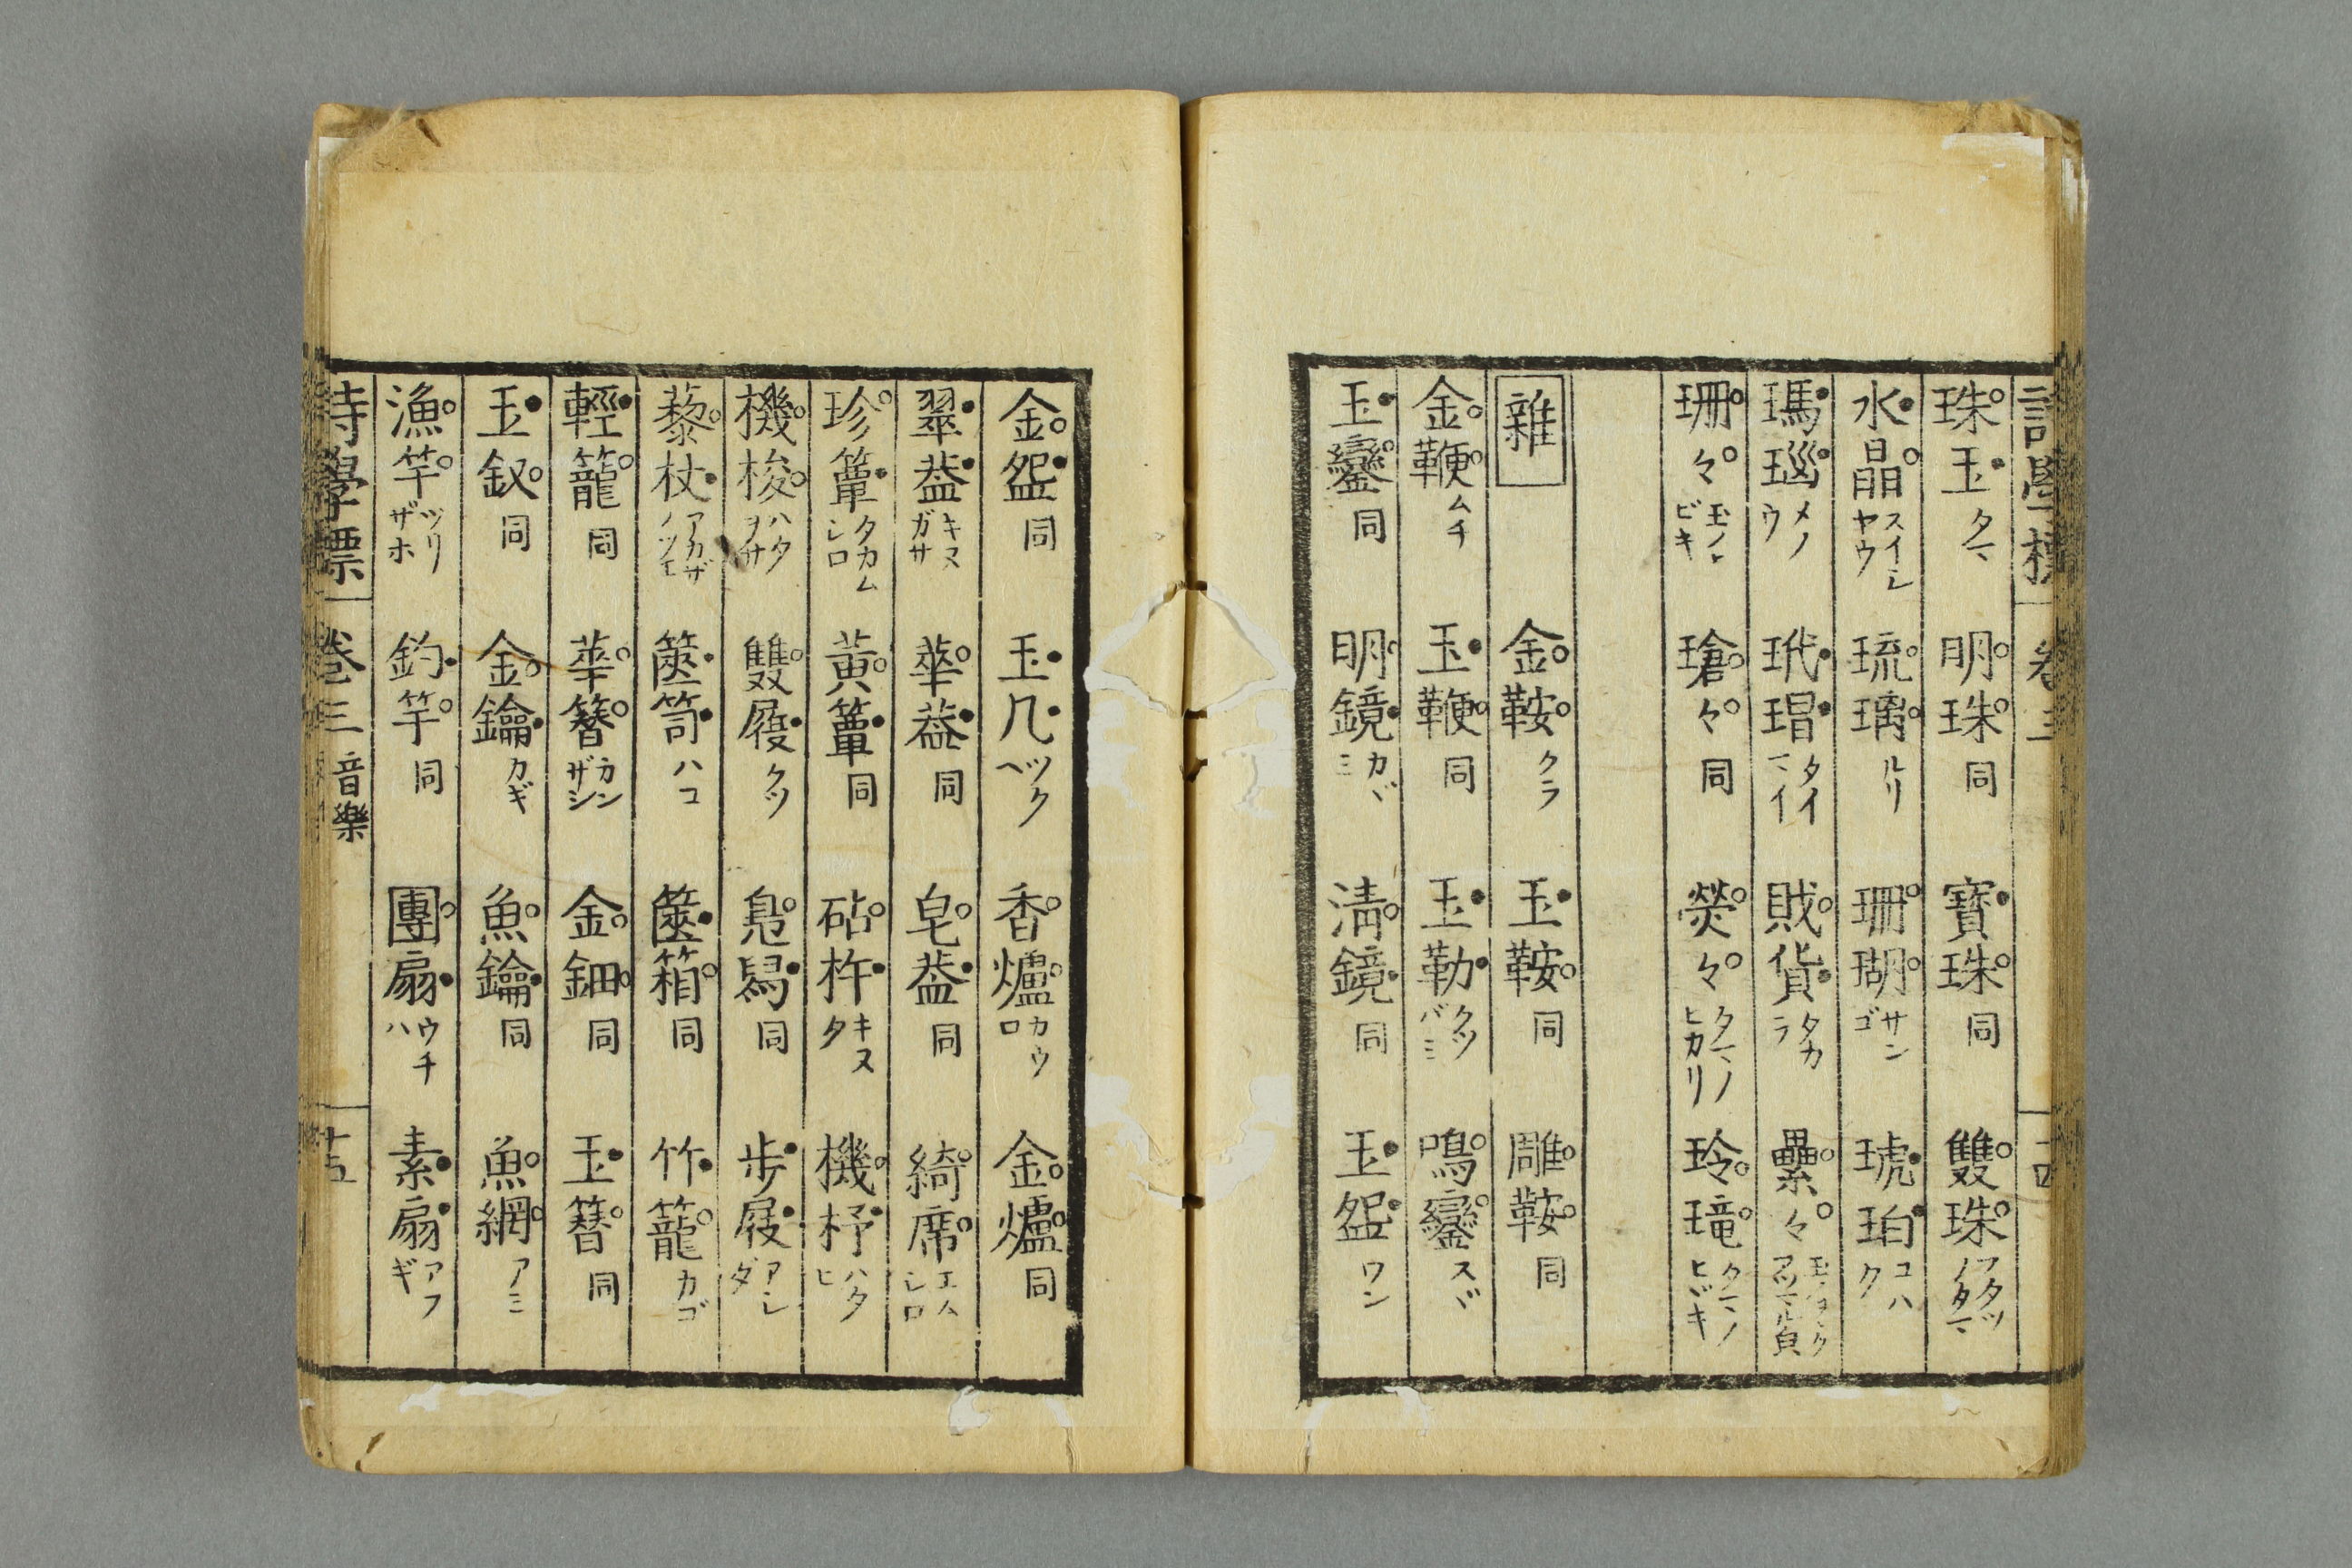 珠玉タマ 明珠同 寶珠同 雙珠フタツノタマ
水晶スイシヤウ 琉璃ルリ 珊瑚サンゴ 琥珀コハク
瑪瑙メノウ 玳瑁タイマイ 賊貨タカラ 纍々
珊々ビキ 瑲々同 熒々タマノヒカリ 玲瓏タマノヒヾキ
雜 金鞍クラ 玉鞍同 雕鞍同
金鞭ムチ 玉鞭同 玉勒クツバミ 鳴鑾スヾ
玉鑾同 明鏡カヾミ 淸鏡同 玉盌ワン
金盌同 玉几ツクヘ 香爐カウロ 金爐同
翠葢キヌガサ 華葢同 皂葢同 綺席エムシロ
珍簟タカムシロ 黃簟同 砧杵キヌタ 機杼ハタヒ
機梭ハタヲサ 雙履クツ 鳧舄同 步屐アシダ
藜杖アカザノツエ 篋笥ハコ 篋箱同 竹籠カゴ
輕籠同 華簪カンザシ 金鈿同 玉簪同
玉釵同 金鑰カギ 魚鑰同 魚網アミ
漁竿ツリザホ 釣竿同 團扇ウチハ 素扇アフギ
詩學標 卷三 音樂 十五